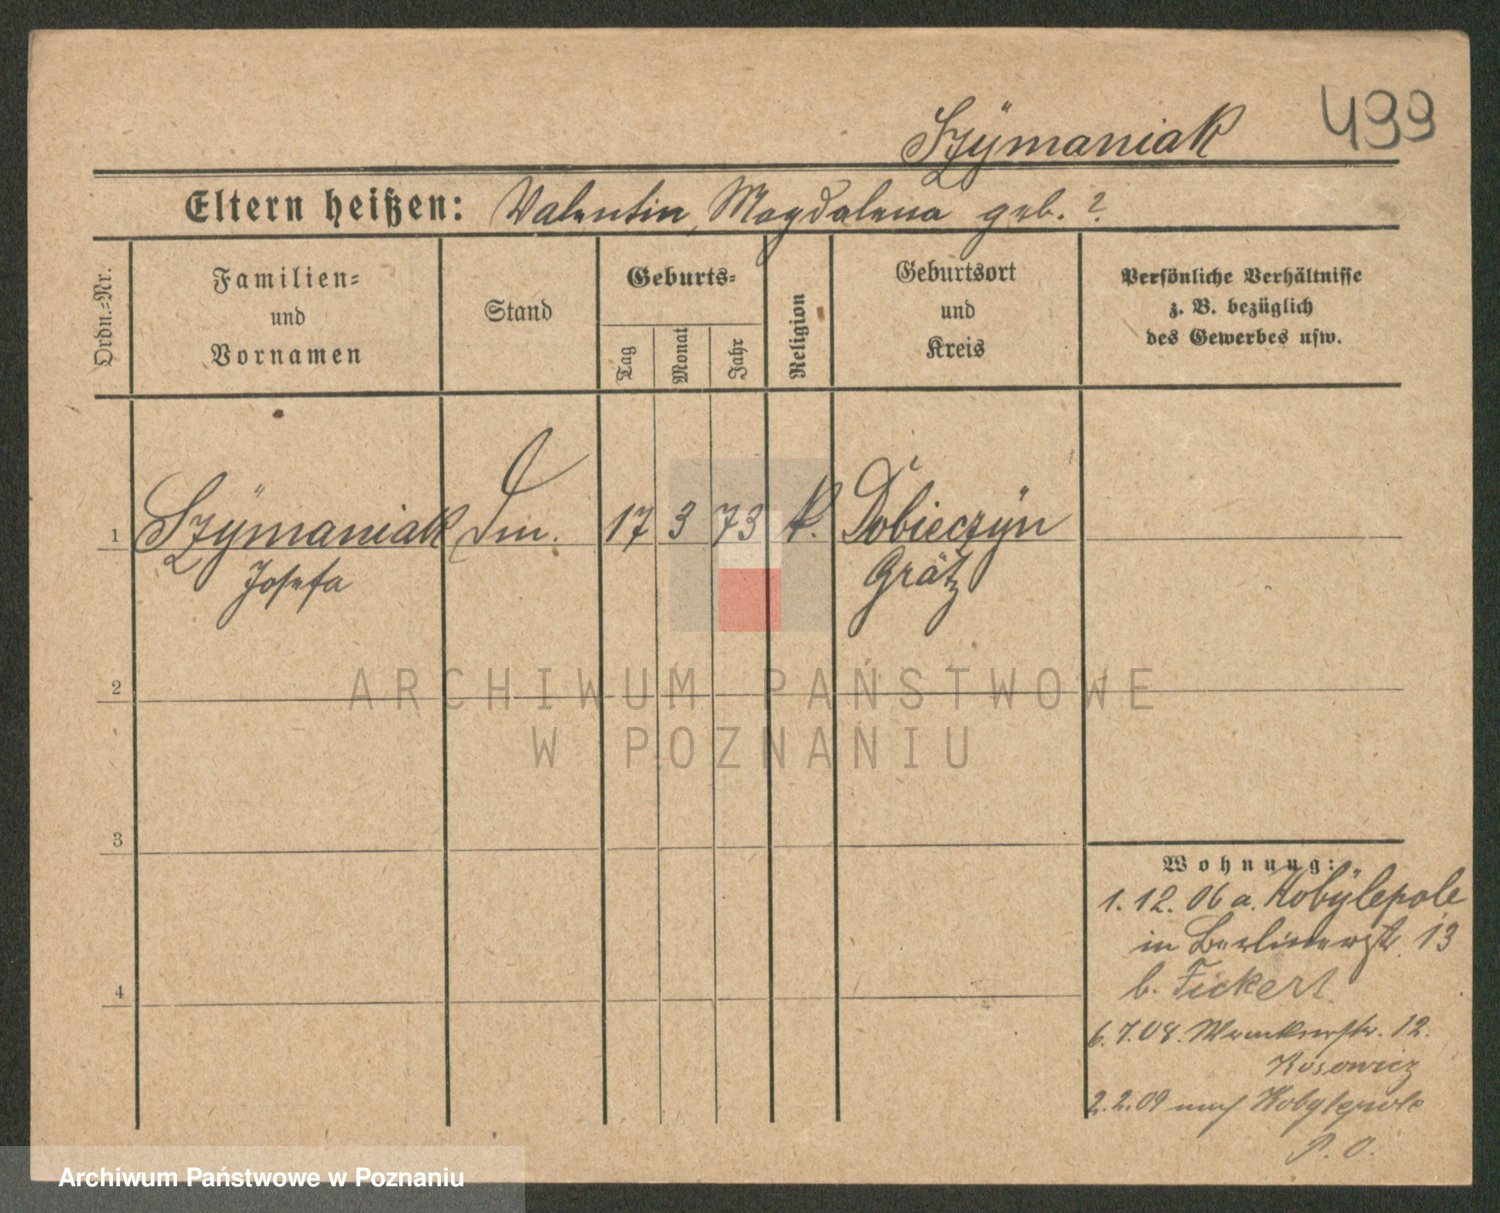 Szÿmaniak
499
Eltern heißen: Valentin, Magdalena geb. ?
Ordn.-Nr.
Familien-
und
Vornamen
Stand
Geburts-
Tag
Monat
Jahr
Religion
Geburtsort
und
Kreis
Persönliche Verhältnisse
z. B. bezüglich
des Gewerbes usw.
1 Szÿmaniak 17 3 73 k. Dobieczÿn
Josefa Grätz
2
ARCHIWUM PAŃSTWOWE
W POZNANIU
3
4
Wohnung:
1. 12. 06 a. Kobÿlepole
in Berlinerstr. 13
b. Fickert
6. 7. 08. 12.
Kosowicz
2. 2. 09 nach Kobylepole
P. O.
Archiwum Państwowe w Poznaniu